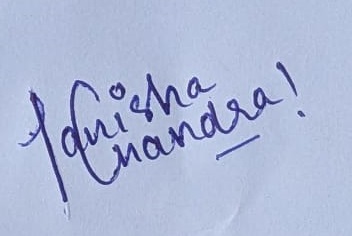 Tanisha
Chandra!